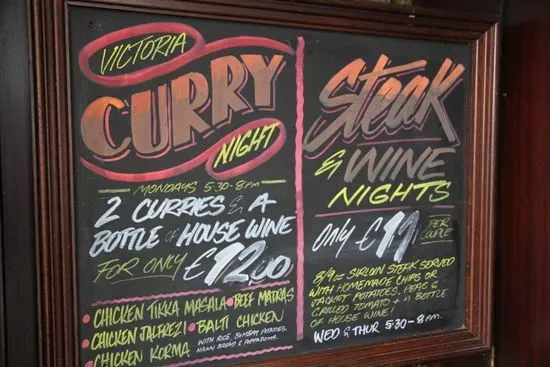 VICTORIA
CURRY
NIGHT
MONDAYS 5.30-8PM
2 CURRIES & A
BOTTLE OF HOUSE WINE
FOR ONLY £12.00
CHICKEN TIKKA MASALA • BEEF MADRAS
CHICKEN JALFREZI • BALTI CHICKEN
CHICKEN KORMA
WITH RICE, BOMBAY POTATOES,
NAAN BREAD & POPPADOMS.
Steak
& WINE
NIGHTS
ONLY £19 PER
COUPLE
8/9oz SIRLOIN STEAK SERVED
WITH HOMEMADE CHIPS OR
JACKET POTATOES, PEAS &
GRILLED TOMATO + A BOTTLE
OF HOUSE WINE!
WED & THUR 5.30-8PM.